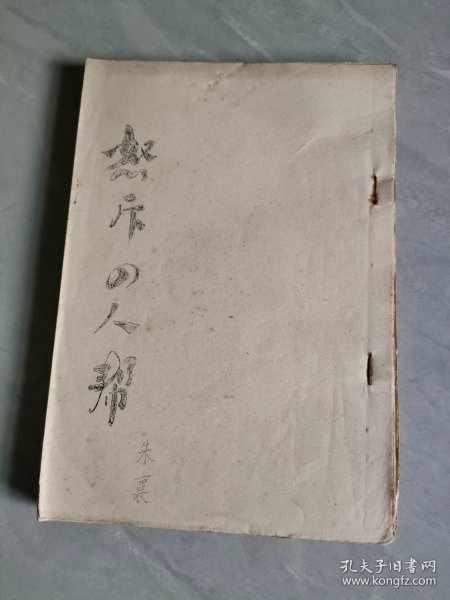 怒斥四人帮
朱襄
孔夫子旧书网
www.kongfz.com